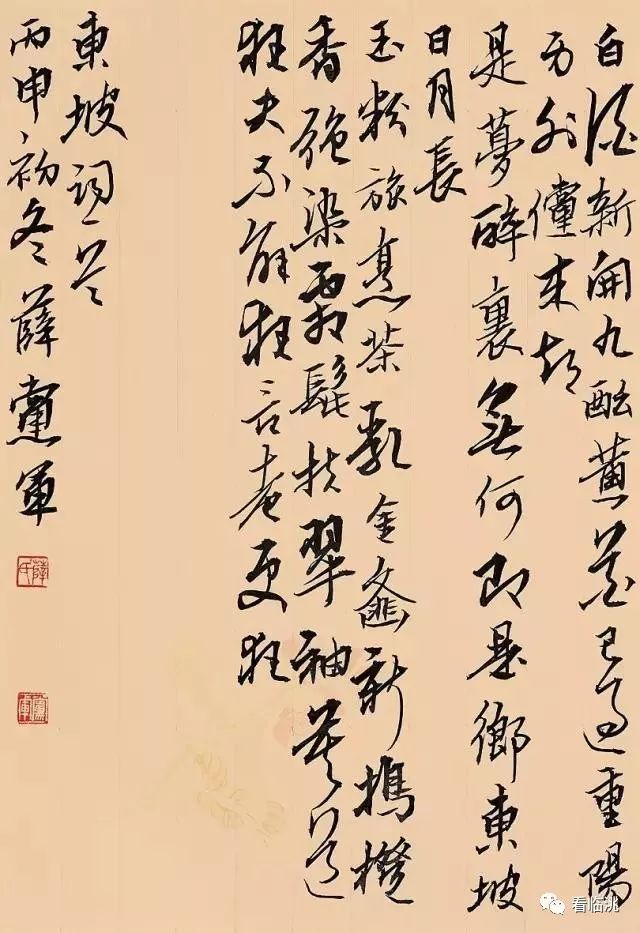 白酒新開九醞黄花已過重陽
身外儻來都
是夢醉裏無何即是鄉東坡
日月長
玉粉旋烹茶乳金齏新搗橙
香強染霜髭扶翠袖莫道
狂夫不解狂言老更狂
東坡詞一首
丙申初冬薛黨軍
薛氏
黨軍
看临洮